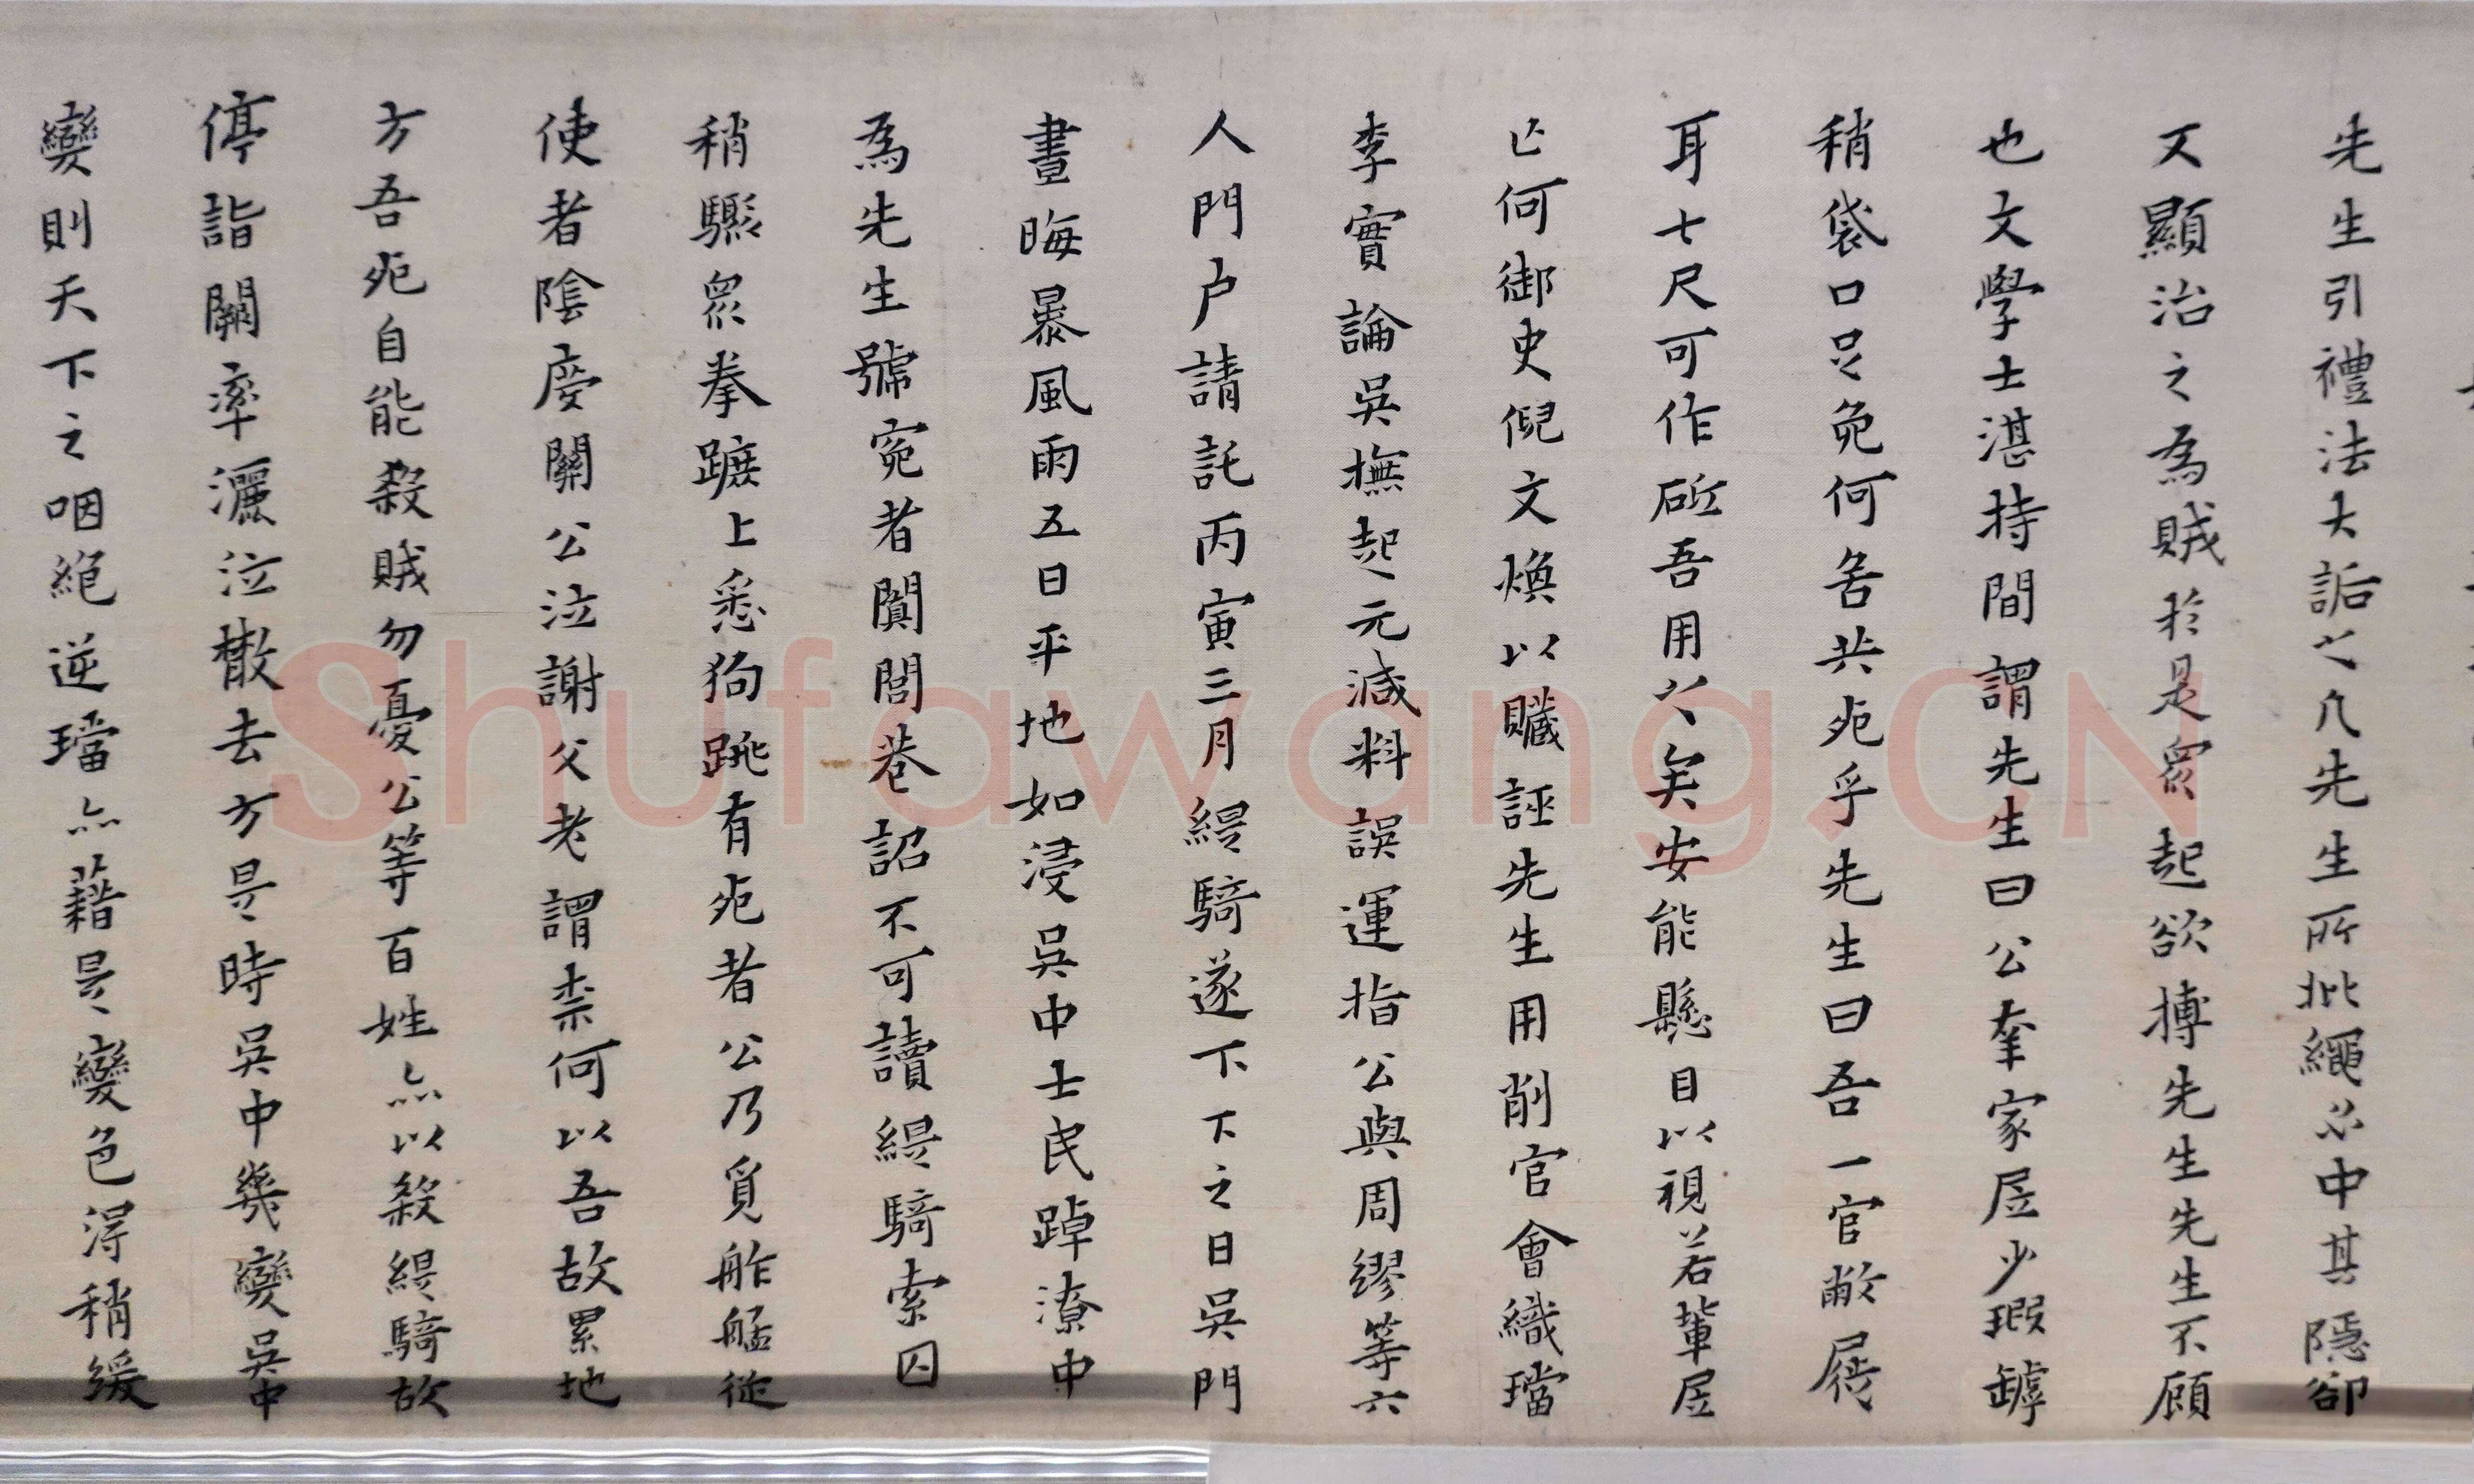 先生引禮法大詬之凡先生所批繩必中其隱卻
又顯治之為賊於是眾起欲搏先生先生不顧
也文學士湛持間謂先生曰公奎家居少瑕罅
稍袋口足免何苦共死乎先生曰吾一官敝屣
耳七尺可作斫吾用以矣安能懸目以視若輩居
亡何御史倪文煥以贓誣先生用削官會織璫
李實論吳撫起元減料誤運指公與周繆等六
人門户請託丙寅三月緹騎遂下下之日吳門
晝晦暴風雨五日平地如浸吳中士民踔潦中
為先生號寃者闐閭巷詔不可讀緹騎索囚
稍驟眾拳蹠上悉狗跳有死者公乃覓舴艋從
使者陰度關公泣謝父老謂柰何以吾故累地
方吾死自能殺賊勿憂公等百姓亦以殺緹騎故
停詣闕率灑泣散去方是時吳中幾變吳中
變則天下之咽絕逆璫亦藉是變色得稍緩
Shufawang.CN